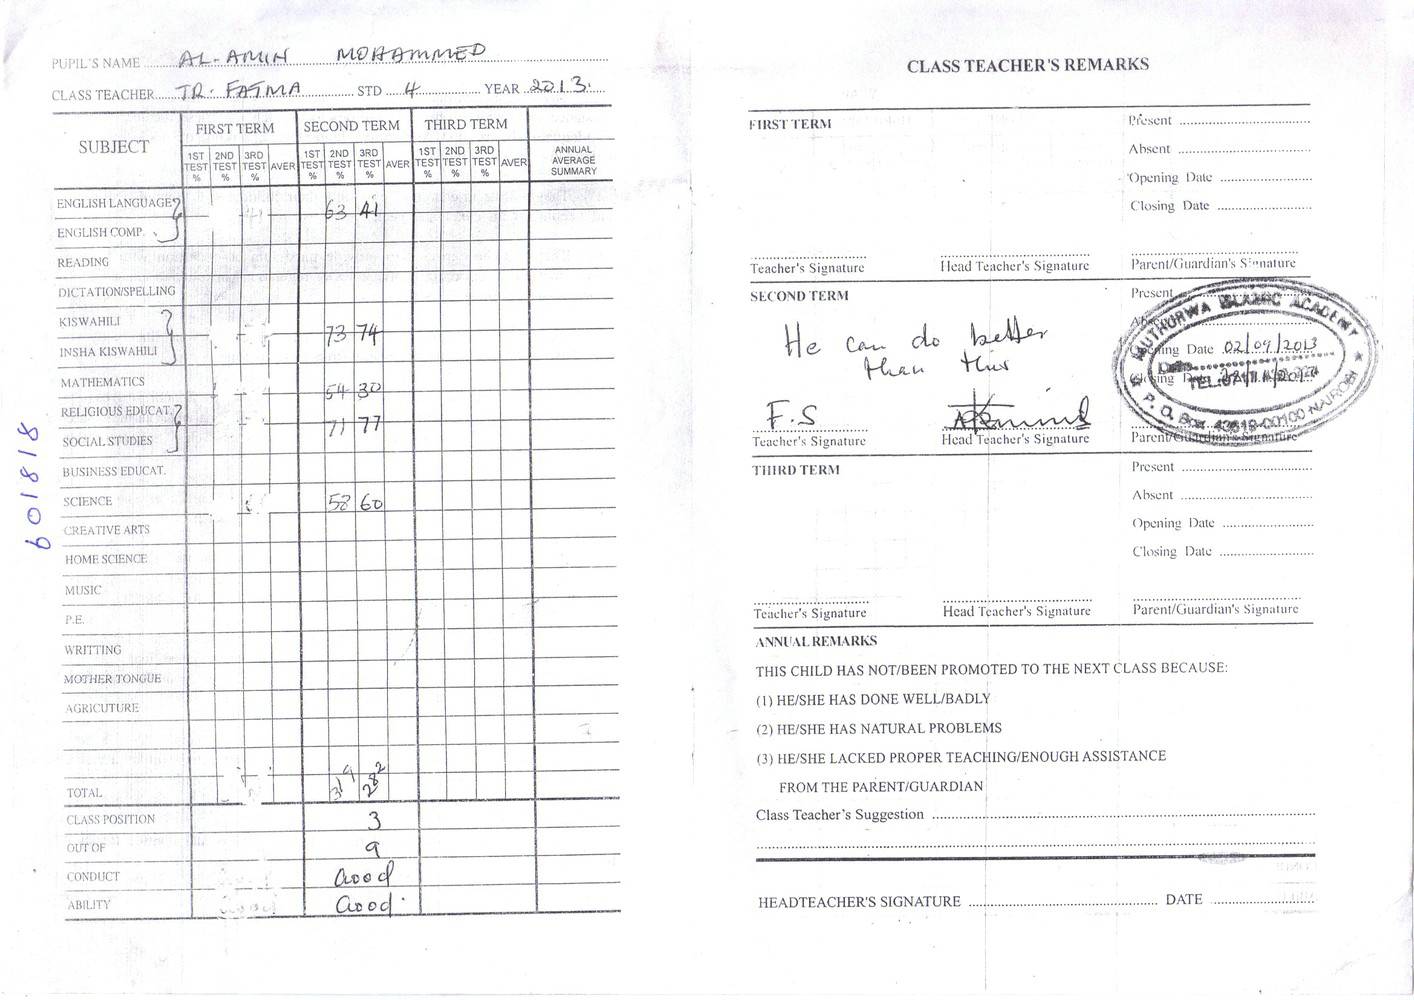 PUPIL'S NAME AL-AMIN MOHAMMED
CLASS TEACHER TR. FATMA STD 4 YEAR 2013.
SUBJECT FIRST TERM SECOND TERM THIRD TERM ANNUAL AVERAGE SUMMARY
1ST TEST % 2ND TEST % 3RD TEST % AVER 1ST TEST % 2ND TEST % 3RD TEST % AVER 1ST TEST % 2ND TEST % 3RD TEST % AVER
ENGLISH LANGUAGE 63 41
ENGLISH COMP.
READING
DICTATION/SPELLING
KISWAHILI 73 74
INSHA KISWAHILI
MATHEMATICS 54 30
RELIGIOUS EDUCAT. 71 77
SOCIAL STUDIES
BUSINESS EDUCAT.
SCIENCE 58 60
CREATIVE ARTS
HOME SCIENCE
MUSIC
P.E.
WRITTING
MOTHER TONGUE
AGRICUTURE
TOTAL 319 282
CLASS POSITION 3
OUT OF 9
CONDUCT Good
ABILITY Good
601818
CLASS TEACHER'S REMARKS
FIRST TERM Present
Absent
Opening Date
Closing Date
Teacher's Signature Head Teacher's Signature Parent/Guardian's Signature
SECOND TERM Present
He can do better
than this
Date 02/09/2013
F.S
Teacher's Signature Head Teacher's Signature Parent/Guardian's Signature
MUTHURWA ISLAMIC ACADEMY
Date
P. O. Box 43519-00100 NAIROBI
THIRD TERM Present
Absent
Opening Date
Closing Date
Teacher's Signature Head Teacher's Signature Parent/Guardian's Signature
ANNUAL REMARKS
THIS CHILD HAS NOT/BEEN PROMOTED TO THE NEXT CLASS BECAUSE:
(1) HE/SHE HAS DONE WELL/BADLY
(2) HE/SHE HAS NATURAL PROBLEMS
(3) HE/SHE LACKED PROPER TEACHING/ENOUGH ASSISTANCE
FROM THE PARENT/GUARDIAN
Class Teacher's Suggestion
HEADTEACHER'S SIGNATURE DATE